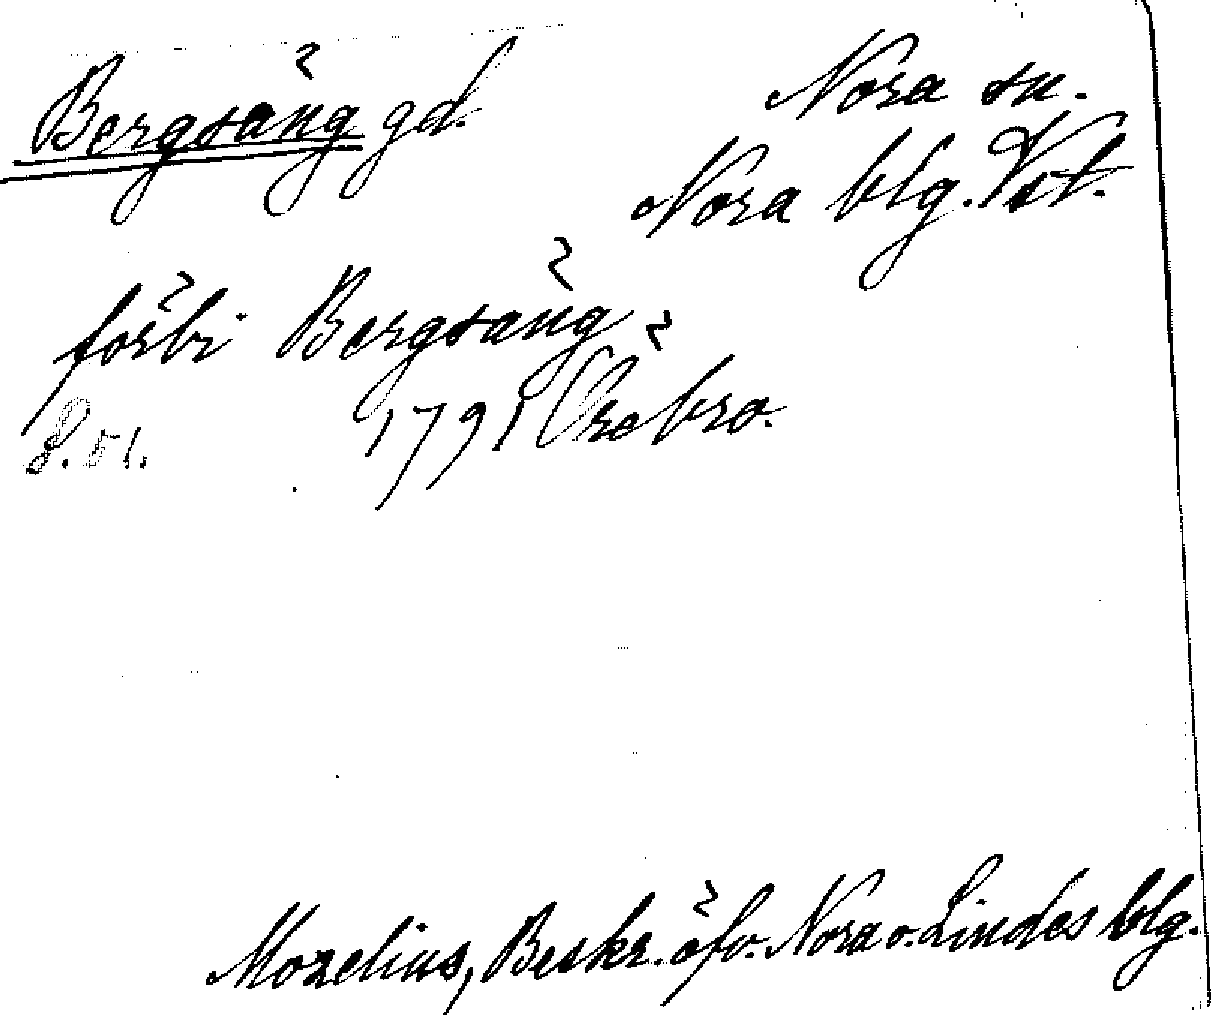 Bergsäng gd.
Nora sn.
Nora blg. Vst.
förbi Bergsäng
S. 51. 1791 Örebro.
Morelius, Beskr. öfv. Nora o. Lindes blg.